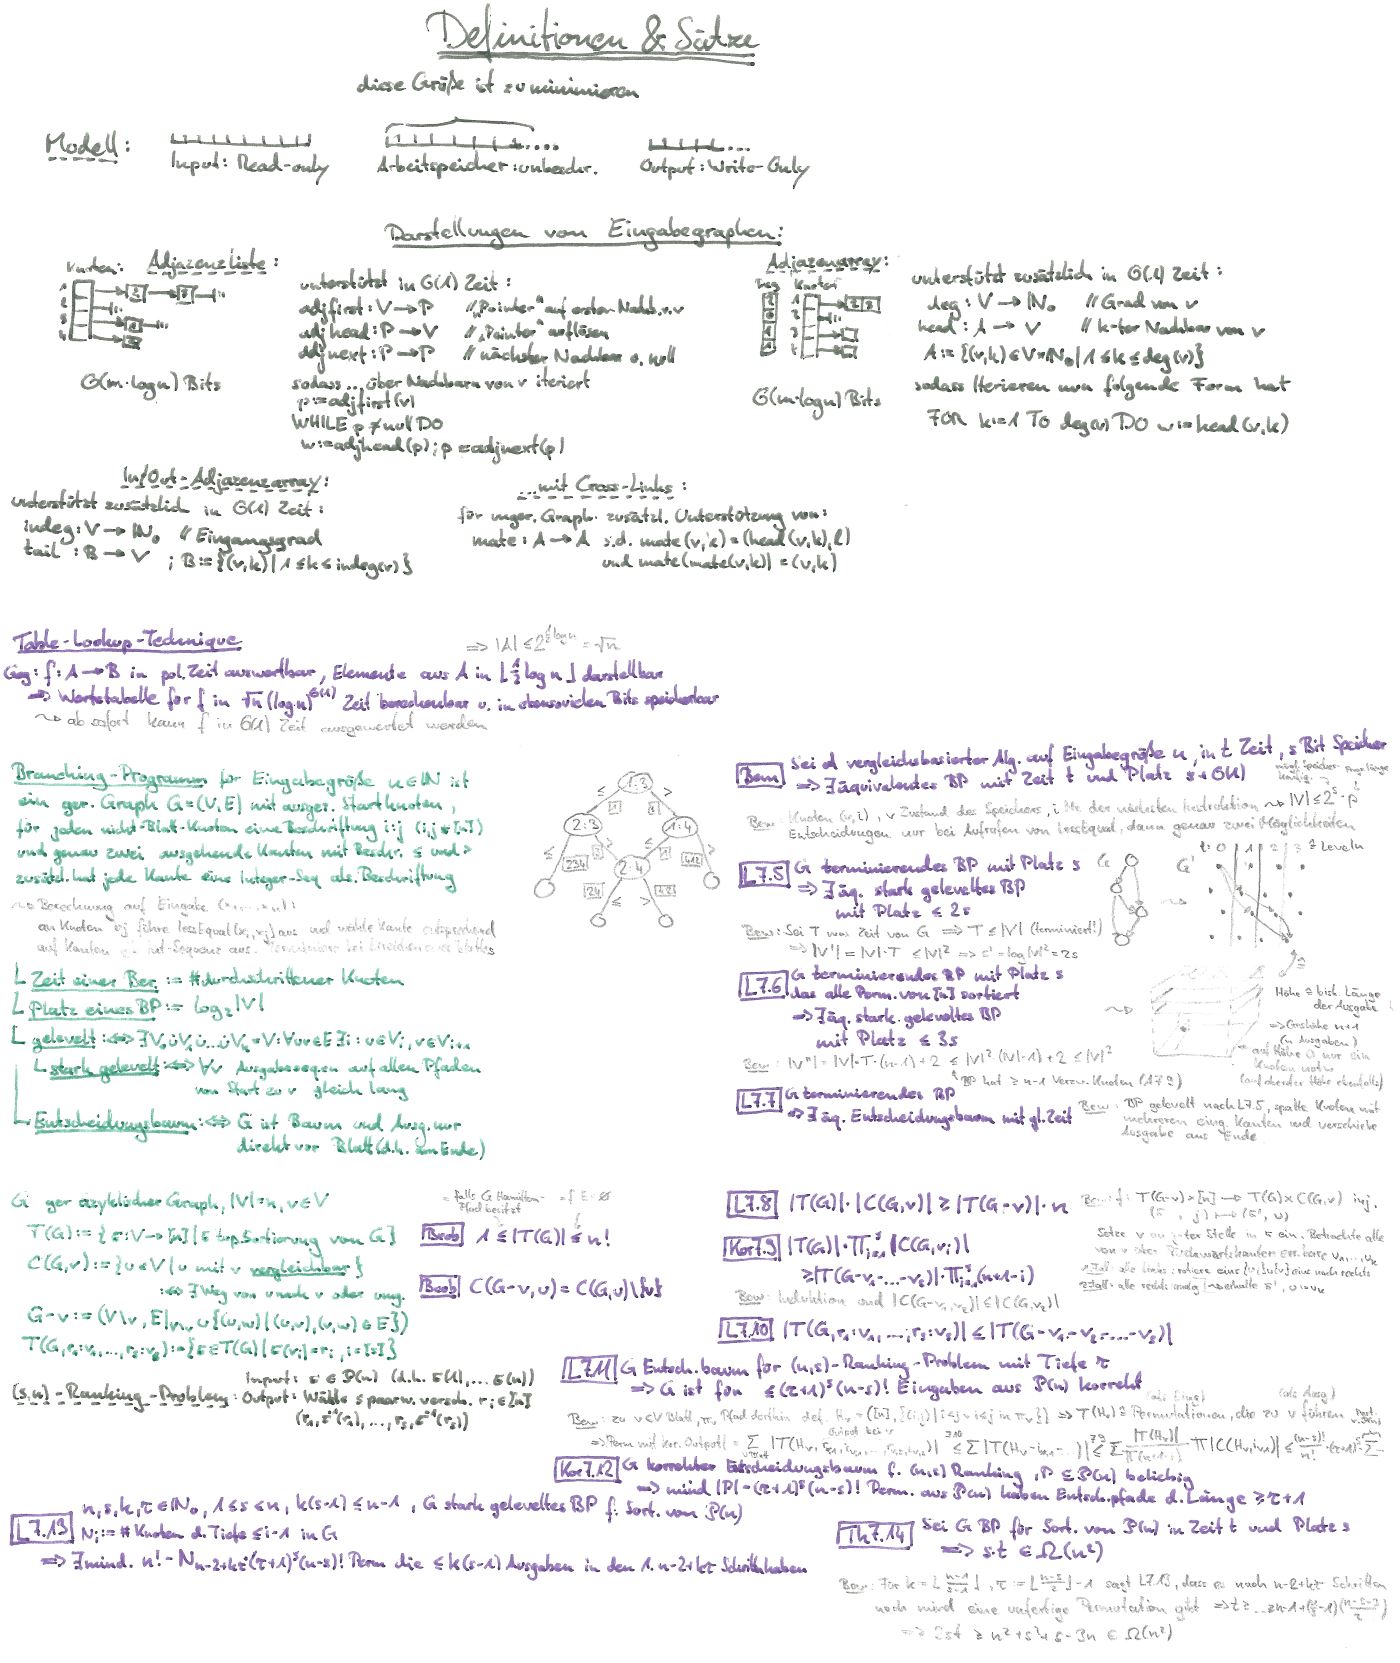 Definitionen & Sätze
diese Größe ist zu minimieren
Modell:
Input: Read-only
Arbeitspeicher: unbeschr.
Output: Write-Only
Darstellungen vom Eingabegraphen:
Knoten: Adjazenzliste:
1
2
3
4
O(m·log n) Bits
unterstützt in O(1) Zeit:
adjfirst: V → P // „Pointer" auf ersten Nachb. v. v
adjhead: P → V // „Pointer" auflösen
adjnext: P → P // nächster Nachbar o. null
sodass ... über Nachbarn von v iteriert
p := adjfirst(v)
WHILE p ≠ null DO
w := adjhead(p); p := adjnext(p)
Adjazenarray:
Deg Knoten
O(m·log n) Bits
unterstützt zusätzlich in O(1) Zeit:
deg: V → ℕ₀ // Grad von v
head: A → V // k-ter Nachbar von v
A := {(v,k) ∈ V×ℕ₀ | 1 ≤ k ≤ deg(v)}
sodass Iterieren nun folgende Form hat
FOR k := 1 TO deg(v) DO w := head(v,k)
In/Out-Adjazenzarray:
unterstützt zusätzlich in O(1) Zeit:
indeg: V → ℕ₀ // Eingangsgrad
tail: B → V ; B := {(v,k) | 1 ≤ k ≤ indeg(v)}
...mit Cross-Links:
für unger. Graph. zusätzl. Unterstützung von:
mate: A → A s.d. mate(v,k) = (head(v,k), l)
und mate(mate(v,k)) = (v,k)
Table-Lookup-Technique
⇒ |A| ≤ 2^(½ log n) = √n
Geg: f: A → B in pol. Zeit auswertbar, Elemente aus A in ⌊½ log n⌋ darstellbar
⇒ Wertetabelle für f in √n (log n)^O(1) Zeit berechenbar u. in ebensovielen Bits speicherbar
↝ ab sofort kann f in O(1) Zeit ausgewertet werden
Branching-Programm für Eingabegröße n ∈ ℕ ist
ein ger. Graph G = (V, E) mit ausgez. Startknoten,
für jeden nicht-Blatt-Knoten eine Beschriftung i:j (i,j ∈ [n])
und genau zwei ausgehende Kanten mit Beschr. ≤ und >
zusätzl. hat jede Kante eine Integer-Seq als Beschriftung
↝ Berechnung auf Eingabe (x₁,...,xₙ):
an Knoten i:j führe lessEqual(xᵢ,xⱼ) aus und wähle Kante entsprechend
Zeit einer Ber. := # durchschrittener Knoten
Platz eines BP := log₂|V|
gelevelt :⇔ ∃ V₀ ∪̇ V₁ ∪̇ ... ∪̇ Vₖ = V: ∀uv∈E ∃i: u∈Vᵢ, v∈Vᵢ₊₁
stark gelevelt :⇔ ∀v Ausgabeseqen auf allen Pfaden
von Start zu v gleich lang
Entscheidungsbaum :⇔ G ist Baum und Ausg. nur
direkt vor Blatt (d.h. am Ende)
2:3
1:4
2:4
Bem Sei A vergleichsbasierter Alg. auf Eingabegröße n, in t Zeit, s Bit Speicher
⇒ ∃ äquivalentes BP mit Zeit t und Platz s + O(1)
Entscheidungen nur bei Aufrufen von lessEqual, dann genau zwei Möglichkeiten
L7.5 G terminierendes BP mit Platz s
⇒ ∃ äq. stark geleveltes BP
mit Platz ≤ 2s
Bew: Sei T max Zeit von G ⇒ T ≤ |V| (terminiert!)
⇒ |V'| = |V|·T ≤ |V|² ⇒ s' = log|V|² = 2s
t: 0 1 2 3 ≙ Leveln
G G'
L7.6 G terminierendes BP mit Platz s
das alle Perm. von [n] sortiert
⇒ ∃ äq. stark. geleveltes BP
mit Platz ≤ 3s
Bew: |V''| = |V|·T·(n-1)+2 ≤ |V|²(|V|-1)+2 ≤ |V|³
BP hat ≥ n-1 Verzw. Knoten (17.2)
Höhe ≙ bish. Länge
der Ausgabe
⇒ Gesthöhe n+1
(n Ausgaben)
auf Höhe 0 nur ein
Knoten notw.
(auf oberster Höhe ebenfalls)
L7.7 G terminierendes BP
⇒ ∃ äq. Entscheidungsbaum mit gl. Zeit
Bew: BP gelevelt nach L7.5, spalte Knoten mit
mehreren eing. Kanten und verschiebe
Ausgabe ans Ende
G ger azyklischer Graph, |V|=n, v∈V
T(G) := {σ: V → [n] | σ top. Sortierung von G}
C(G,v) := {u∈V | u mit v vergleichbar}
:⇔ ∃ Weg von u nach v oder umg.
G-v := (V\v, E|V\v ∪ {(u,w) | (u,v),(v,w) ∈ E})
T(G, r₁:v₁, ..., rₛ:vₛ) := {σ∈T(G) | σ(vᵢ)=rᵢ, i=[s]}
(s,n)-Ranking-Problem: Input: σ ∈ P(n) (d.h. σ(1),...σ(n))
Output: Wähle s paarw. versch. rᵢ∈[n]
(r₁,σ⁻¹(r₁),...,rₛ,σ⁻¹(rₛ))
= falls G Hamilton-
Pfad besitzt
= f. E = ∅
Beob 1 ≤ |T(G)| ≤ n!
Beob C(G-v,u) = C(G,u)\{v}
L7.8 |T(G)|·|C(G,v)| ≥ |T(G-v)|·n
Bew: f: T(G-v)×[n] → T(G)×C(G,v) inj.
(σ, j) ↦ (σ', u)
Kor7.9 |T(G)|·∏ᵢ₌₁ˢ|C(G,vᵢ)|
≥ |T(G-v₁-...-vₛ)|·∏ᵢ₌₁ˢ(n+1-i)
Bew: Induktion und |C(G-v₁,v₂)| ≤ |C(G,v₂)|
L7.10 |T(G,r₁:v₁,...,rₛ:vₛ)| ≤ |T(G-v₁-v₂-...-vₛ)|
L7.11 G Entsch.baum für (n,s)-Ranking-Problem mit Tiefe τ
⇒ G ist für ≤ (τ+1)ˢ(n-s)! Eingaben aus P(n) korrekt
Kor7.12 G korrekter Entscheidungsbaum f. (n,s) Ranking, P ⊆ P(n) beliebig
⇒ mind |P| - (τ+1)ˢ(n-s)! Perm. aus P(n) haben Entsch.pfade d. Länge ≥ τ+1
L7.13 n,s,k,τ ∈ ℕ₀, 1≤s≤n, k(s-1) ≤ n-1, G stark geleveltes BP f. Sort. von P(n)
Nᵢ := # Knoten d. Tiefe ≤ i-1 in G
⇒ ∃ mind. n! - Nₙ₋₂₊ₖτ(τ+1)ˢ(n-s)! Perm die ≤ k(s-1) Ausgaben in den 1. n-2+kτ Schritten haben
Th7.14 Sei G BP für Sort. von P(n) in Zeit t und Platz s
⇒ s·t ∈ Ω(n²)
Bew: Für k = ⌊(n-1)/(s-1)⌋, τ := ⌊(n-s)/2⌋-1 sagt L7.13, dass es nach n-2+kτ Schritten
noch mind eine unfertige Permutation gibt
⇒ 2st ≥ n²+s²+s-3n ∈ Ω(n²)